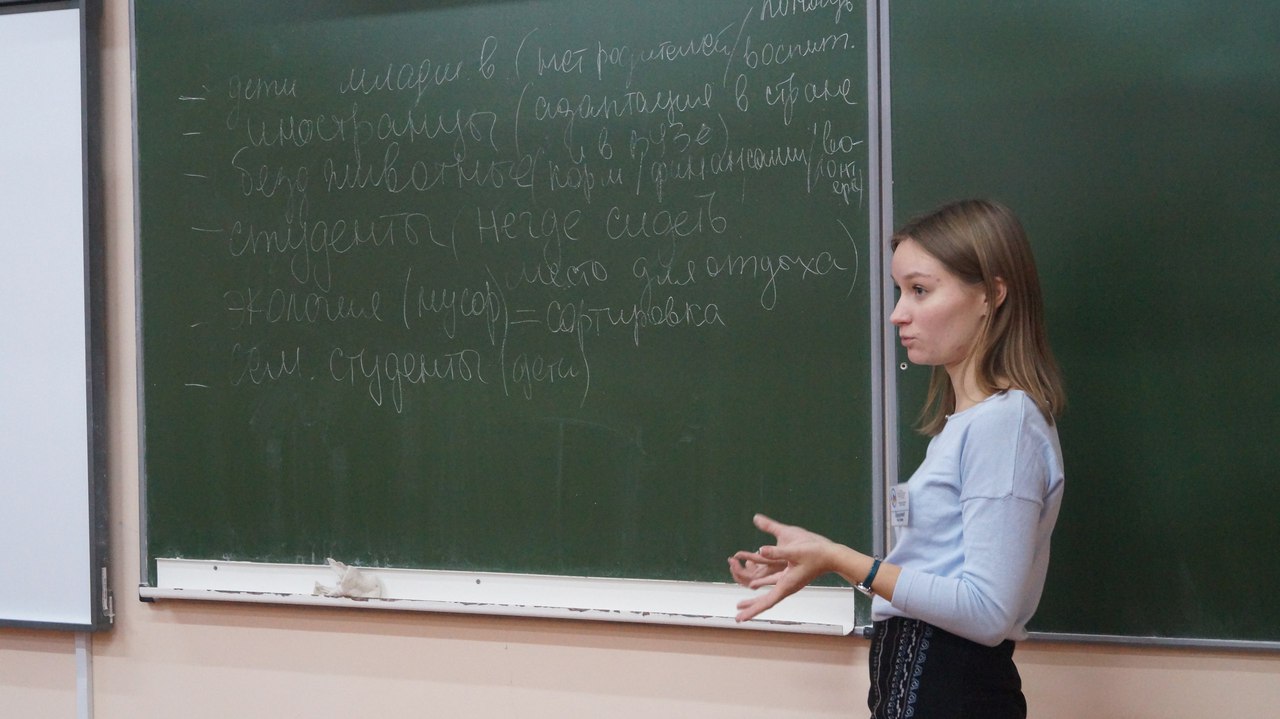 – дети младш. в. (нет родителей / помощь воспит.
– иностранцы (адаптация в стране
и в ВУЗе)
– безд животные (корм / финансами / "во-
лонт
еры)
– студенты (негде сидеть
место для отдыха)
– экология (мусор) = сортировка
– сем. студенты (дети)